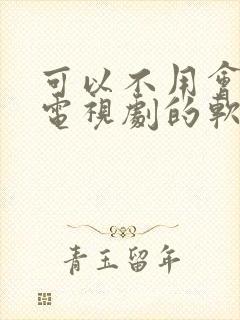 可以不用會
電視劇的軟
青玉留年